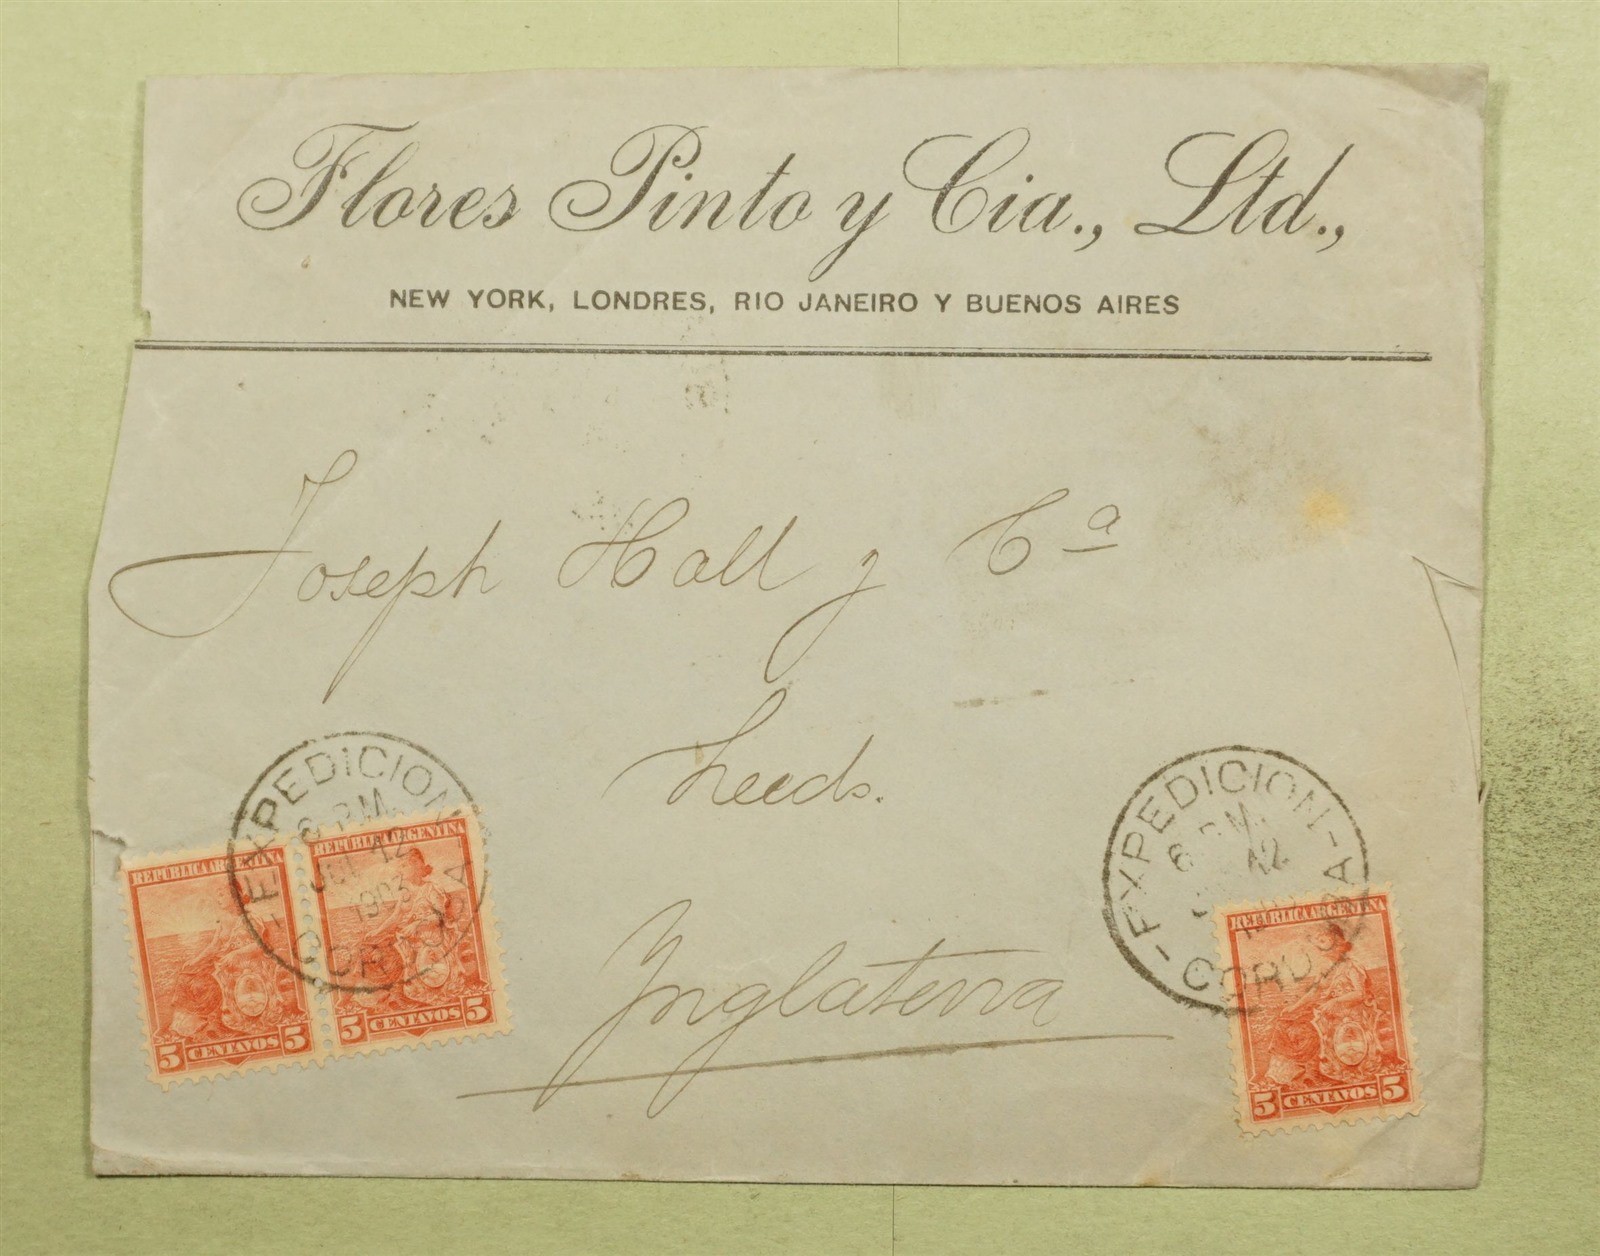 Flores Pinto y Cia., Ltd.,
NEW YORK, LONDRES, RIO JANEIRO Y BUENOS AIRES
Joseph Hall y Cª
Leeds.
Inglaterra
-EXPEDICION-
6 P.M.
JUL 12
1903
CORDOBA
REPUBLICA ARGENTINA
5 CENTAVOS 5
REPUBLICA ARGENTINA
5 CENTAVOS 5
-EXPEDICION-
6 P.M.
12
CORDOBA
REPUBLICA ARGENTINA
5 CENTAVOS 5